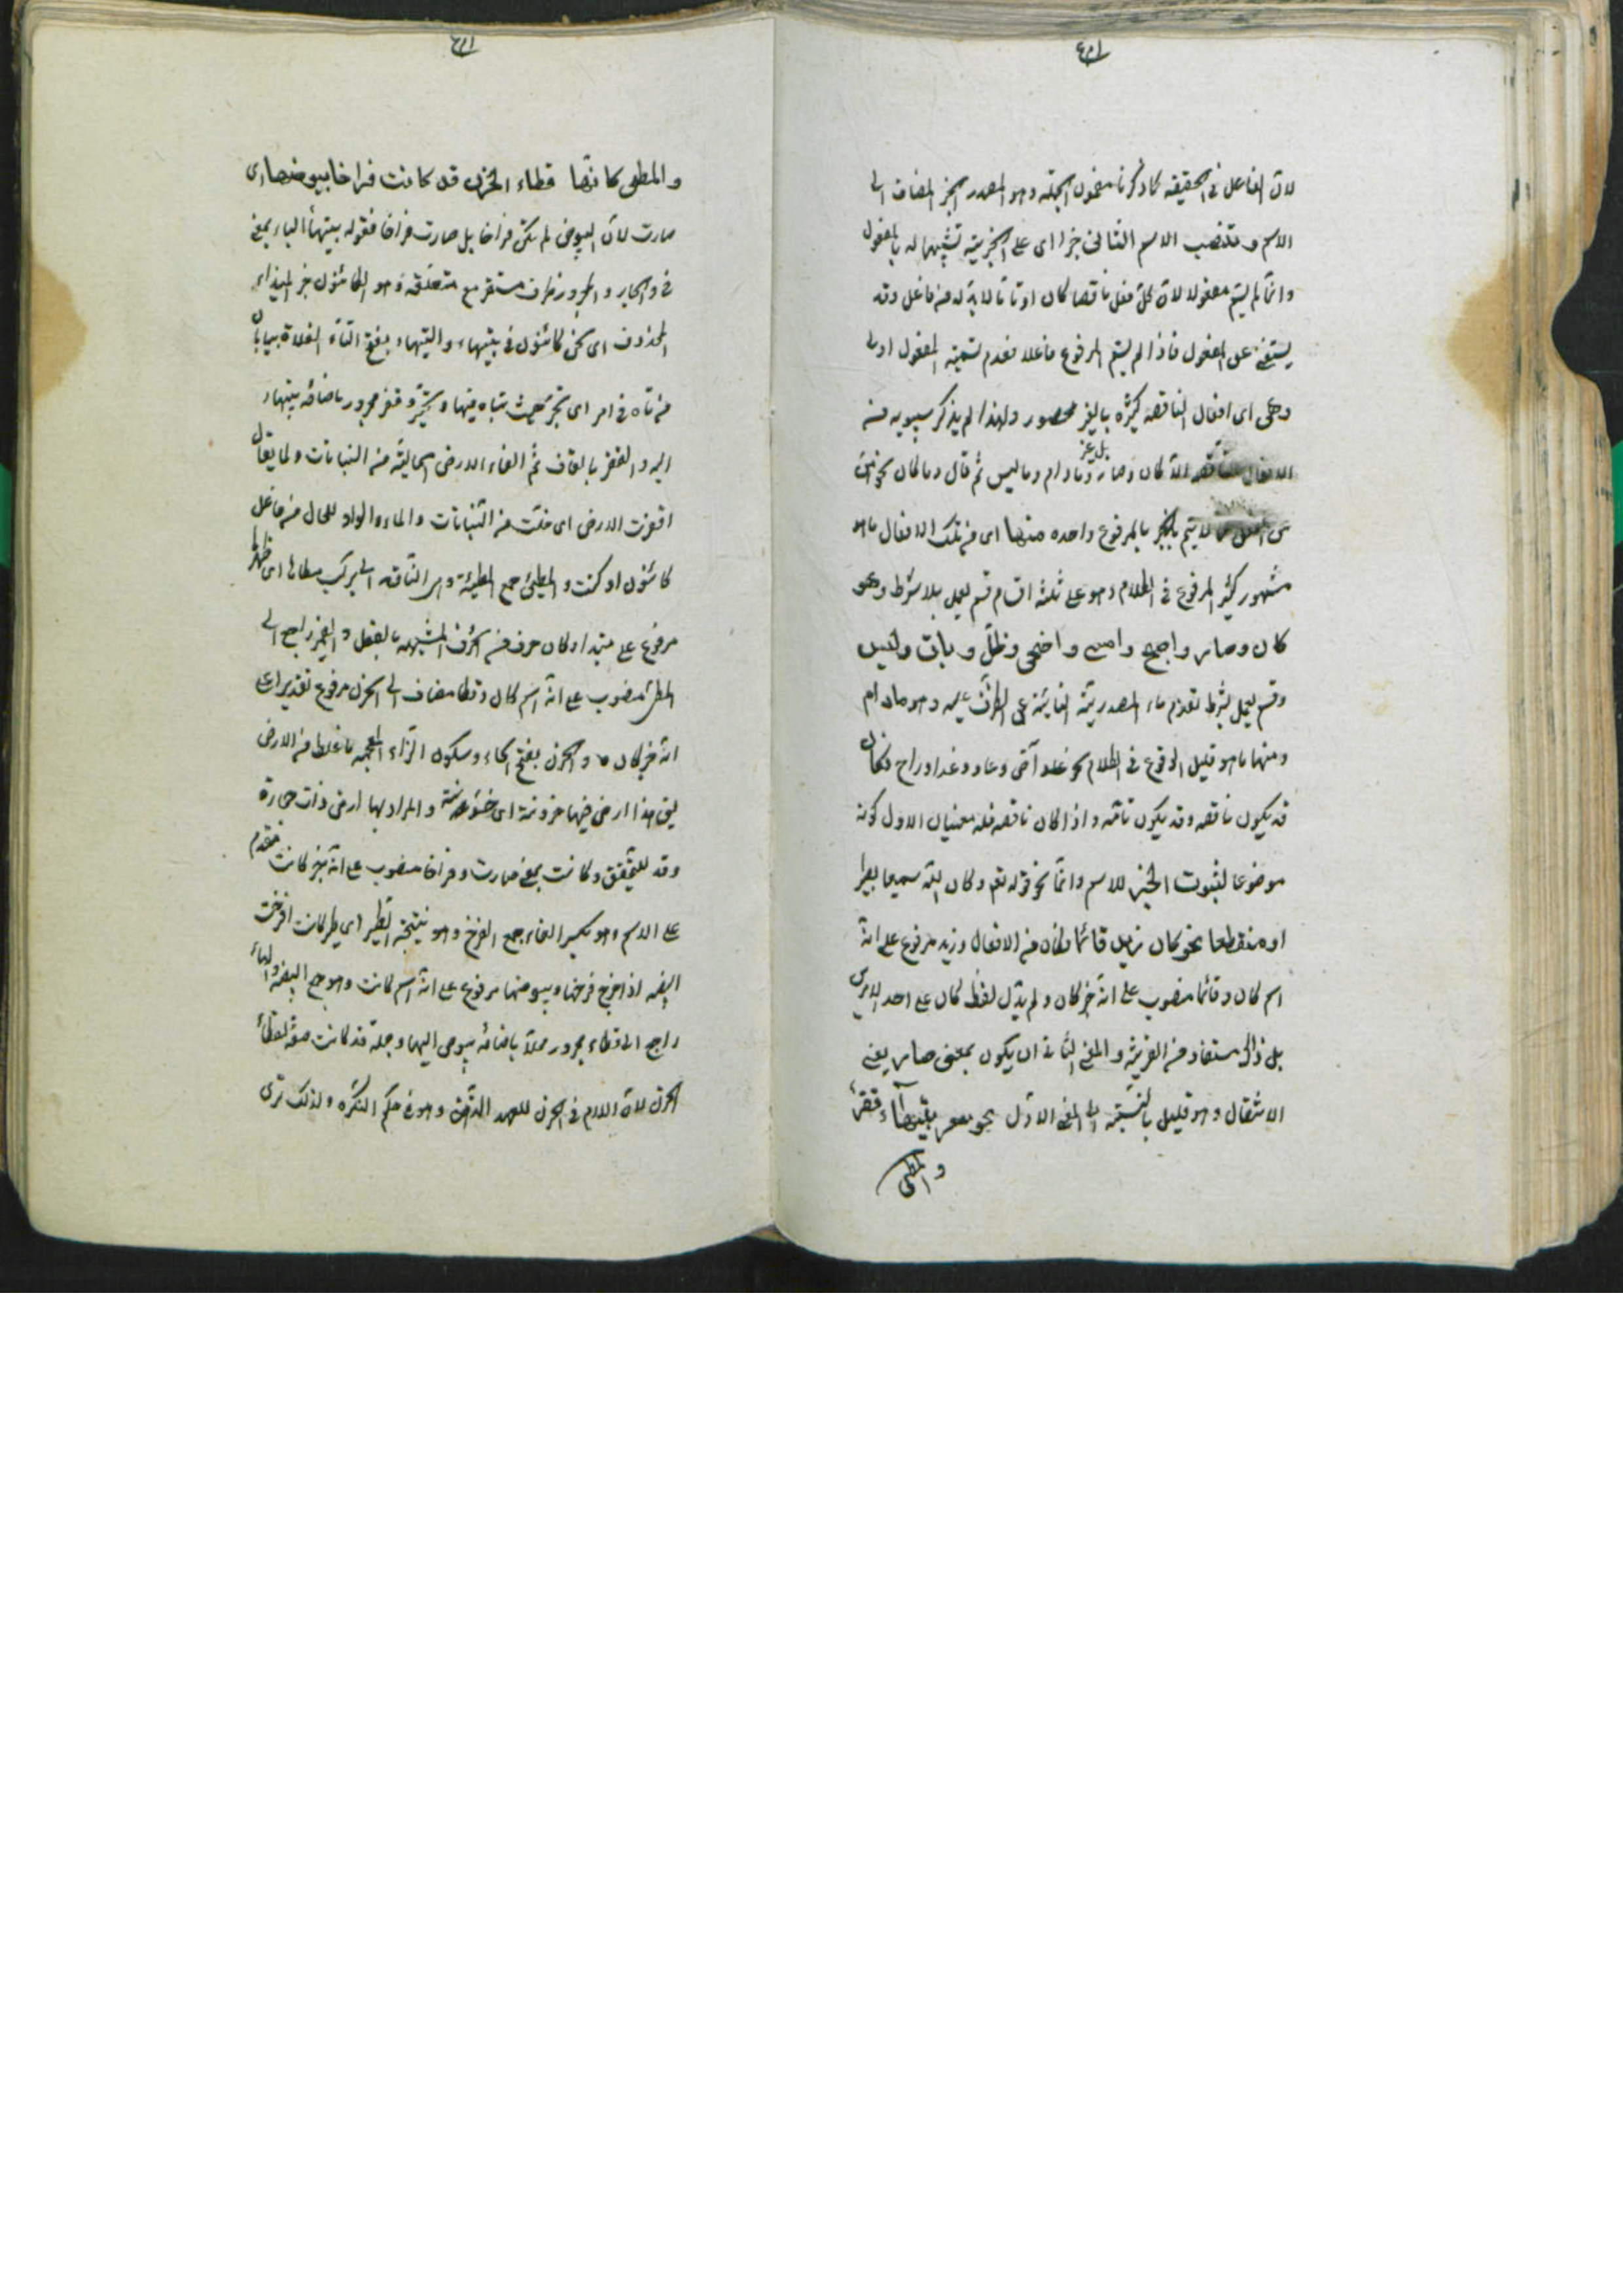 لان الفاعل فی الحقیقه کما ذکرنا مضمون الجمله و هو المصدر الخبر المضاف الی
الاسم و تنصب الاسم الثانی خبرا ای علی الخبریة تشبیها له بالمفعول
و انما لم یسم مفعولا لان کل فعل ناقصا کان او تاما لابد له من فاعل و قد
یستغنی عن المفعول فاذا لم یسم المرفوع فاعلا فعدم تسمیة المفعول اولی
و هی ای افعال الناقصه کثیره محصور و لهذا لم یذکر سیبویه منه
الافعال الناقصه الا کان و صار و مادام و لیس ثم قال و ما کان نحوهن
من الفعل مما لا یتم بالمرفوع واحده منها ای من تلک الافعال ما هو
مشهور کثیر الوقوع فی الکلام و هو علی ثلثه اقسام قسم یعمل بلا شرط و هو
کان و صار و اصبح و امسی و اضحی و ظل و بات و لیس
و قسم یعمل بشرط تقدم ماء المصدریة النایبة عن الظرف علیه و هو مادام
و منها ما هو قلیل الوقوع فی الکلام نحو آض و عاد و غدا و راح فکان
قد یکون ناقصه و قد یکون تامه و اذا کان ناقصه فله معنیان الاول کونه
موضوعا لثبوت الخبر للاسم دائما نحو قوله تعم و کان الله سمیعا بصیرا
او منقطعا نحو کان زید قائما فکان من الافعال و زید مرفوع علی انه
اسم کان و قائما منصوب علی انه خبر کان و لم یدل لفظ کان علی احد الامرین
بل ذالک مستفاد من القرینه و المعنی الثانی ان یکون بمعنی صار یعنی
الانتقال و هو قلیل بالنسبة الی المعنی الاول نحو شعر بتیهاء قفر
و المطی
و المطی کانها قطاء الحزن قد کانت فراخا بیوضها ای
صارت لان البیوض لم تکن فراخا بل صارت فراخا فقوله بتیهاء الباء بمعنی
فی و الجار و المجرور ظرف مستقر مع متعلقه و هو الکائنون خبر المبتداء
المحذوف ای نحن کائنون فی تیهاء و التیهاء بفتح التاء الفلاة بیابان
من تاه فی امر ای تحیر بحیث تتاه فیها و تتحیر و قفر مجرور باضافه بتیهاء
الیه و القفر بالقاف ثم الفاء الارض الخالیة من النباتات و لما یقال
اقفرت الارض ای خلت من النباتات و الماء و الواو للحال من فاعل
کائنون او کنت و المطی جمع المطیة و هی الناقه التی یرکب مطاها ای ظهرها
مرفوع علی مبتدا و کان حرف من الحرف المشبهه بالفعل و الضمیر راجع الی
المطی منصوب علی انه اسم کان و قطا مضاف الی الحزن مرفوع تقدیرا علی
انه خبر کان و الحزن بفتح الحاء و سکون الزاء المعجمه ما غلظ من الارض
یق هذا ارض فیها حزونة ای خشونة و المراد بها ارض ذات حجارة
و قد للتحقیق و کانت بمعنی صارت و فراخا منصوب علی انه خبر کانت مقدم
علی الاسم و هو بکسر الفاء جمع الفرخ و هو نتیجة الطیر ای طیر کانت افرخت
البیض اذا خرج فرخها و بیوضها مرفوع علی انه اسم کانت و هو جمع البیضه و الهاء
راجع الی قطاء مجرور محلا باضافه بیوض الیها و جمله قد کانت صفه لقطاء
الحزن لان اللام فی الحزن للعهد الذهن و هو فی حکم النکره و لذلک تری